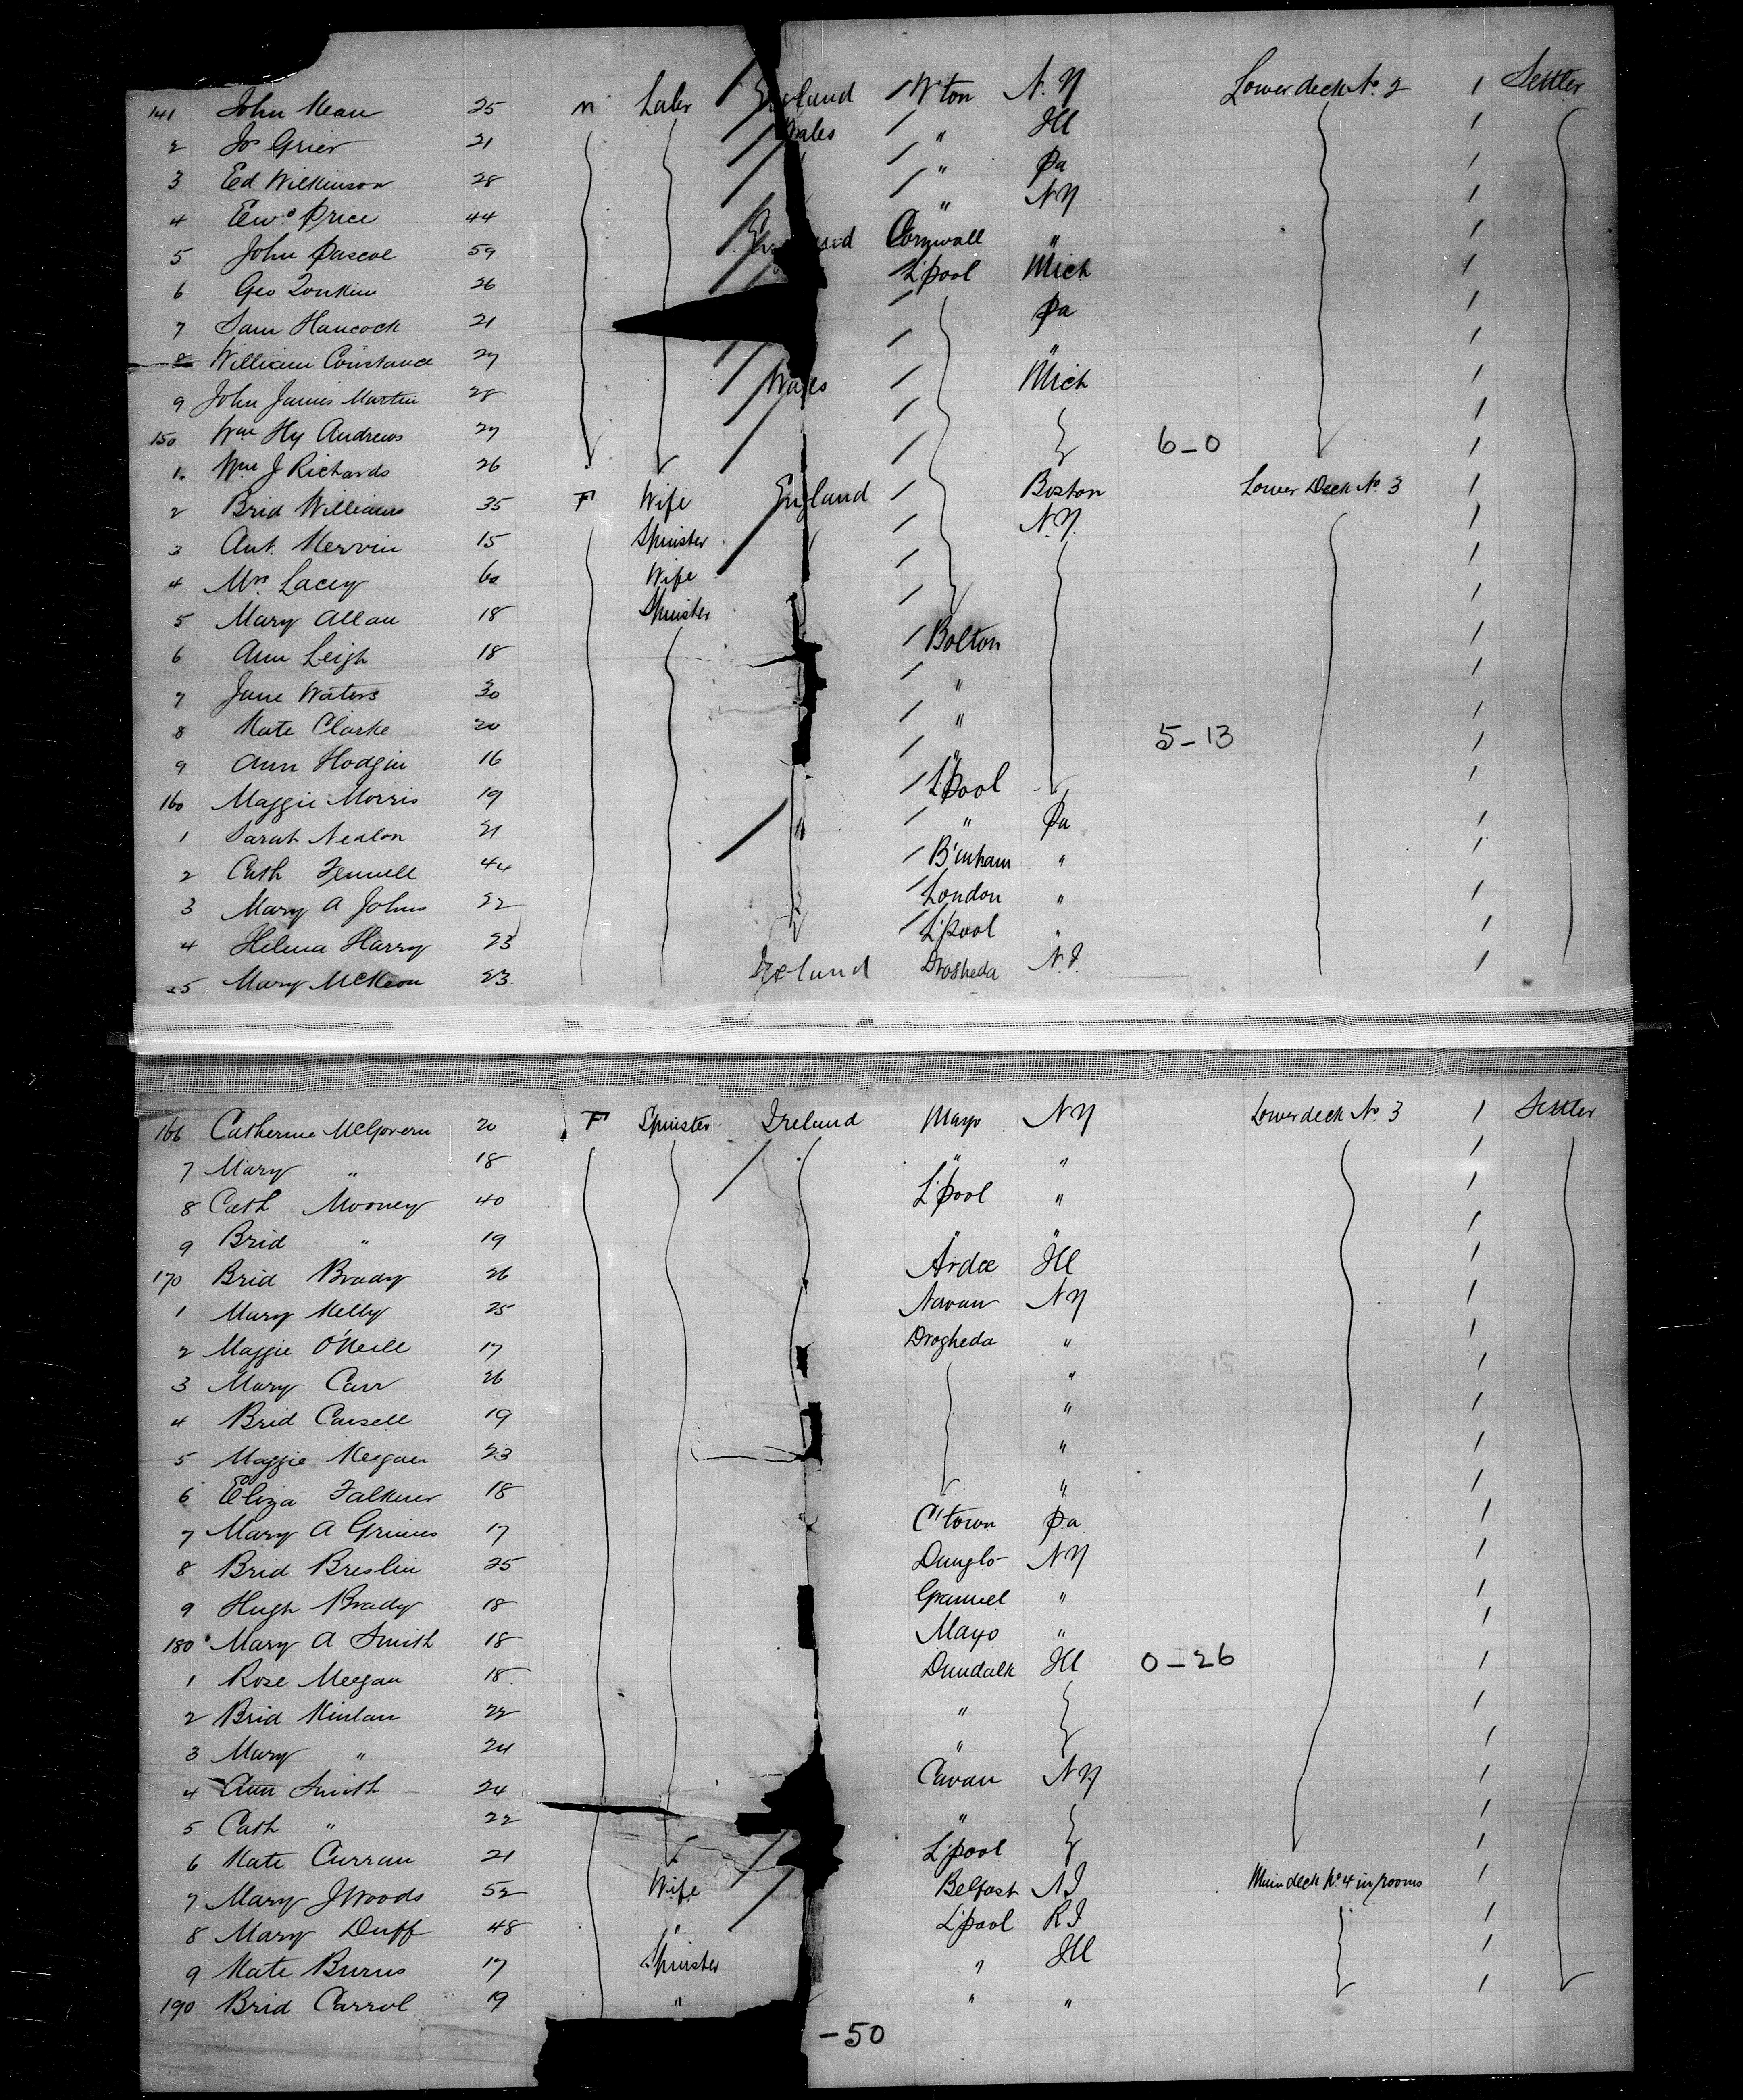 141 John Kean 25 M Labr England W'ton N.Y Lower deck No. 2 1 Settler
2 Jos Grier 21 Wales " Ill 1
3 Ed Wilkinson 28 " Pa 1
4 Ewd Price 44 " NY 1
5 John Pascoe 59 England Cornwall " 1
6 Geo Tonkin 26 L'pool Mich 1
7 Sam Hancock 21 Pa 1
8 William Constance 27 " 1
9 John James Martin 28 Wales Mich 1
150 Wm Hy Andrews 27 6-0 1
1 Wm J Richards 26 1
2 Brid Williams 35 F Wife England Boston Lower Deck No. 3 1
3 Ant. Kervin 15 Spinster N.Y. 1
4 Mrs Lacey 60 Wife 1
5 Mary Allan 18 Spinster 1
6 Ann Leigh 18 Bolton 1
7 Jane Waters 30 " 1
8 Kate Clarke 20 " 5-13 1
9 Ann Hodgin 16 " 1
160 Maggie Morris 19 L'pool 1
1 Sarah Nealon 21 " " Pa 1
2 Cath Fennell 44 B'mham " 1
3 Mary A Johns 22 London " 1
4 Helena Harry 23 L'pool " 1
5 Mary McKeon 23 Ireland Drogheda N.J. 1
166 Catherine McGovern 20 F Spinster Ireland Mayo NY Lower deck No. 3 1 Settler
7 Mary " 18 " " 1
8 Cath Mooney 40 L'pool " 1
9 Brid " 19 " " 1
170 Brid Brady 26 Ardee Ill 1
1 Mary Kelly 25 Navan NY 1
2 Maggie O'Neill 17 Drogheda " 1
3 Mary Carr 26 " 1
4 Brid Cassell 19 " 1
5 Maggie Keegan 23 " 1
6 Eliza Falkner 18 " 1
7 Mary A Grimes 17 C'town Pa 1
8 Brid Breslin 25 Dunglo NY 1
9 Hugh Brady 18 " 1
180 Mary A Smith 18 Mayo " 1
1 Rose Meegan 18 Dundalk Ill 0-26 1
2 Brid Kinlan 22 " 1
3 Mary " 24 " 1
4 Ann Smith 24 Cavan NY 1
5 Cath " 22 " 1
6 Kate Curran 21 L'pool 1
7 Mary J Woods 52 Wife Belfast NJ Main deck No 4 in rooms 1
8 Mary Duff 48 " L'pool RI 1
9 Kate Burns 17 Spinster " Ill 1
190 Brid Carrol 19 " " " 1
-50